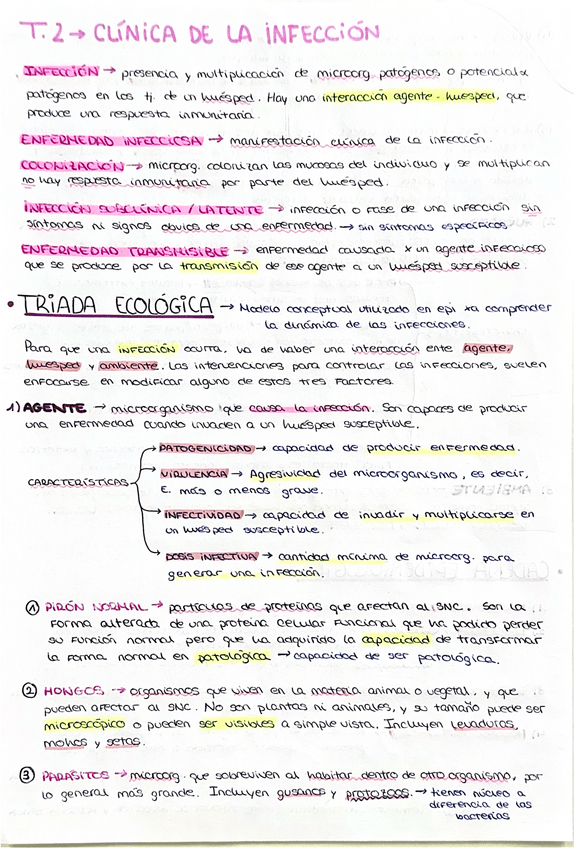 T.2 → CLÍNICA DE LA INFECCIÓN
INFECCIÓN → presencia y multiplicación de microorg. patógenos o potencial x
patógenos en los tj. de un huésped. Hay una interacción agente-huésped, que
produce una respuesta inmunitaria.
ENFERMEDAD INFECCIOSA → manifestación clínica de la infección.
COLONIZACIÓN → microorg. colonizan las mucosas del individuo y se multiplican
no hay respuesta inmunitaria por parte del huésped.
INFECCIÓN SUBCLÍNICA / LATENTE → infección o fase de una infección sin
síntomas ni signos obvios de una enfermedad. → sin síntomas específicos
ENFERMEDAD TRANSMISIBLE → enfermedad causada x un agente infeccioso
que se produce por la transmisión de ese agente a un huésped susceptible.
• TRIADA ECOLÓGICA → Modelo conceptual utilizado en epi xa comprender
la dinámica de las infecciones.
Para que una infección ocurra, va de haber una interacción ente agente,
huésped y ambiente. Las intervenciones para controlar las infecciones, suelen
enfocarse en modificar alguno de estos tres factores.
1) AGENTE → microorganismo que causa la infección. Son capaces de producir
una enfermedad cuando invaden a un huésped susceptible.
CARACTERÍSTICAS
PATOGENICIDAD → capacidad de producir enfermedad.
VIRULENCIA → Agresividad del microorganismo, es decir,
E. más o menos grave.
INFECTIVIDAD → capacidad de invadir y multiplicarse en
un huésped susceptible.
DOSIS INFECTIVA → cantidad mínima de microorg. para
generar una infección.
① PIRÓN NORMAL → partículas de proteínas que afectan al SNC. Son la
forma alterada de una proteína celular funcional que ha podido perder
su función normal pero que ha adquirido la capacidad de transformar
la forma normal en patológica → capacidad de ser patológica.
② HONGOS → organismos que viven en la materia animal o vegetal, y que
pueden afectar al SNC. No son plantas ni animales, y su tamaño puede ser
microscópico o pueden ser visibles a simple vista. Incluyen levaduras,
mohos y setas.
③ PARÁSITOS → microorg. que sobreviven al habitar dentro de otro organismo, por
lo general más grande. Incluyen gusanos y protozoos. → tienen núcleo a
diferencia de las
bacterias